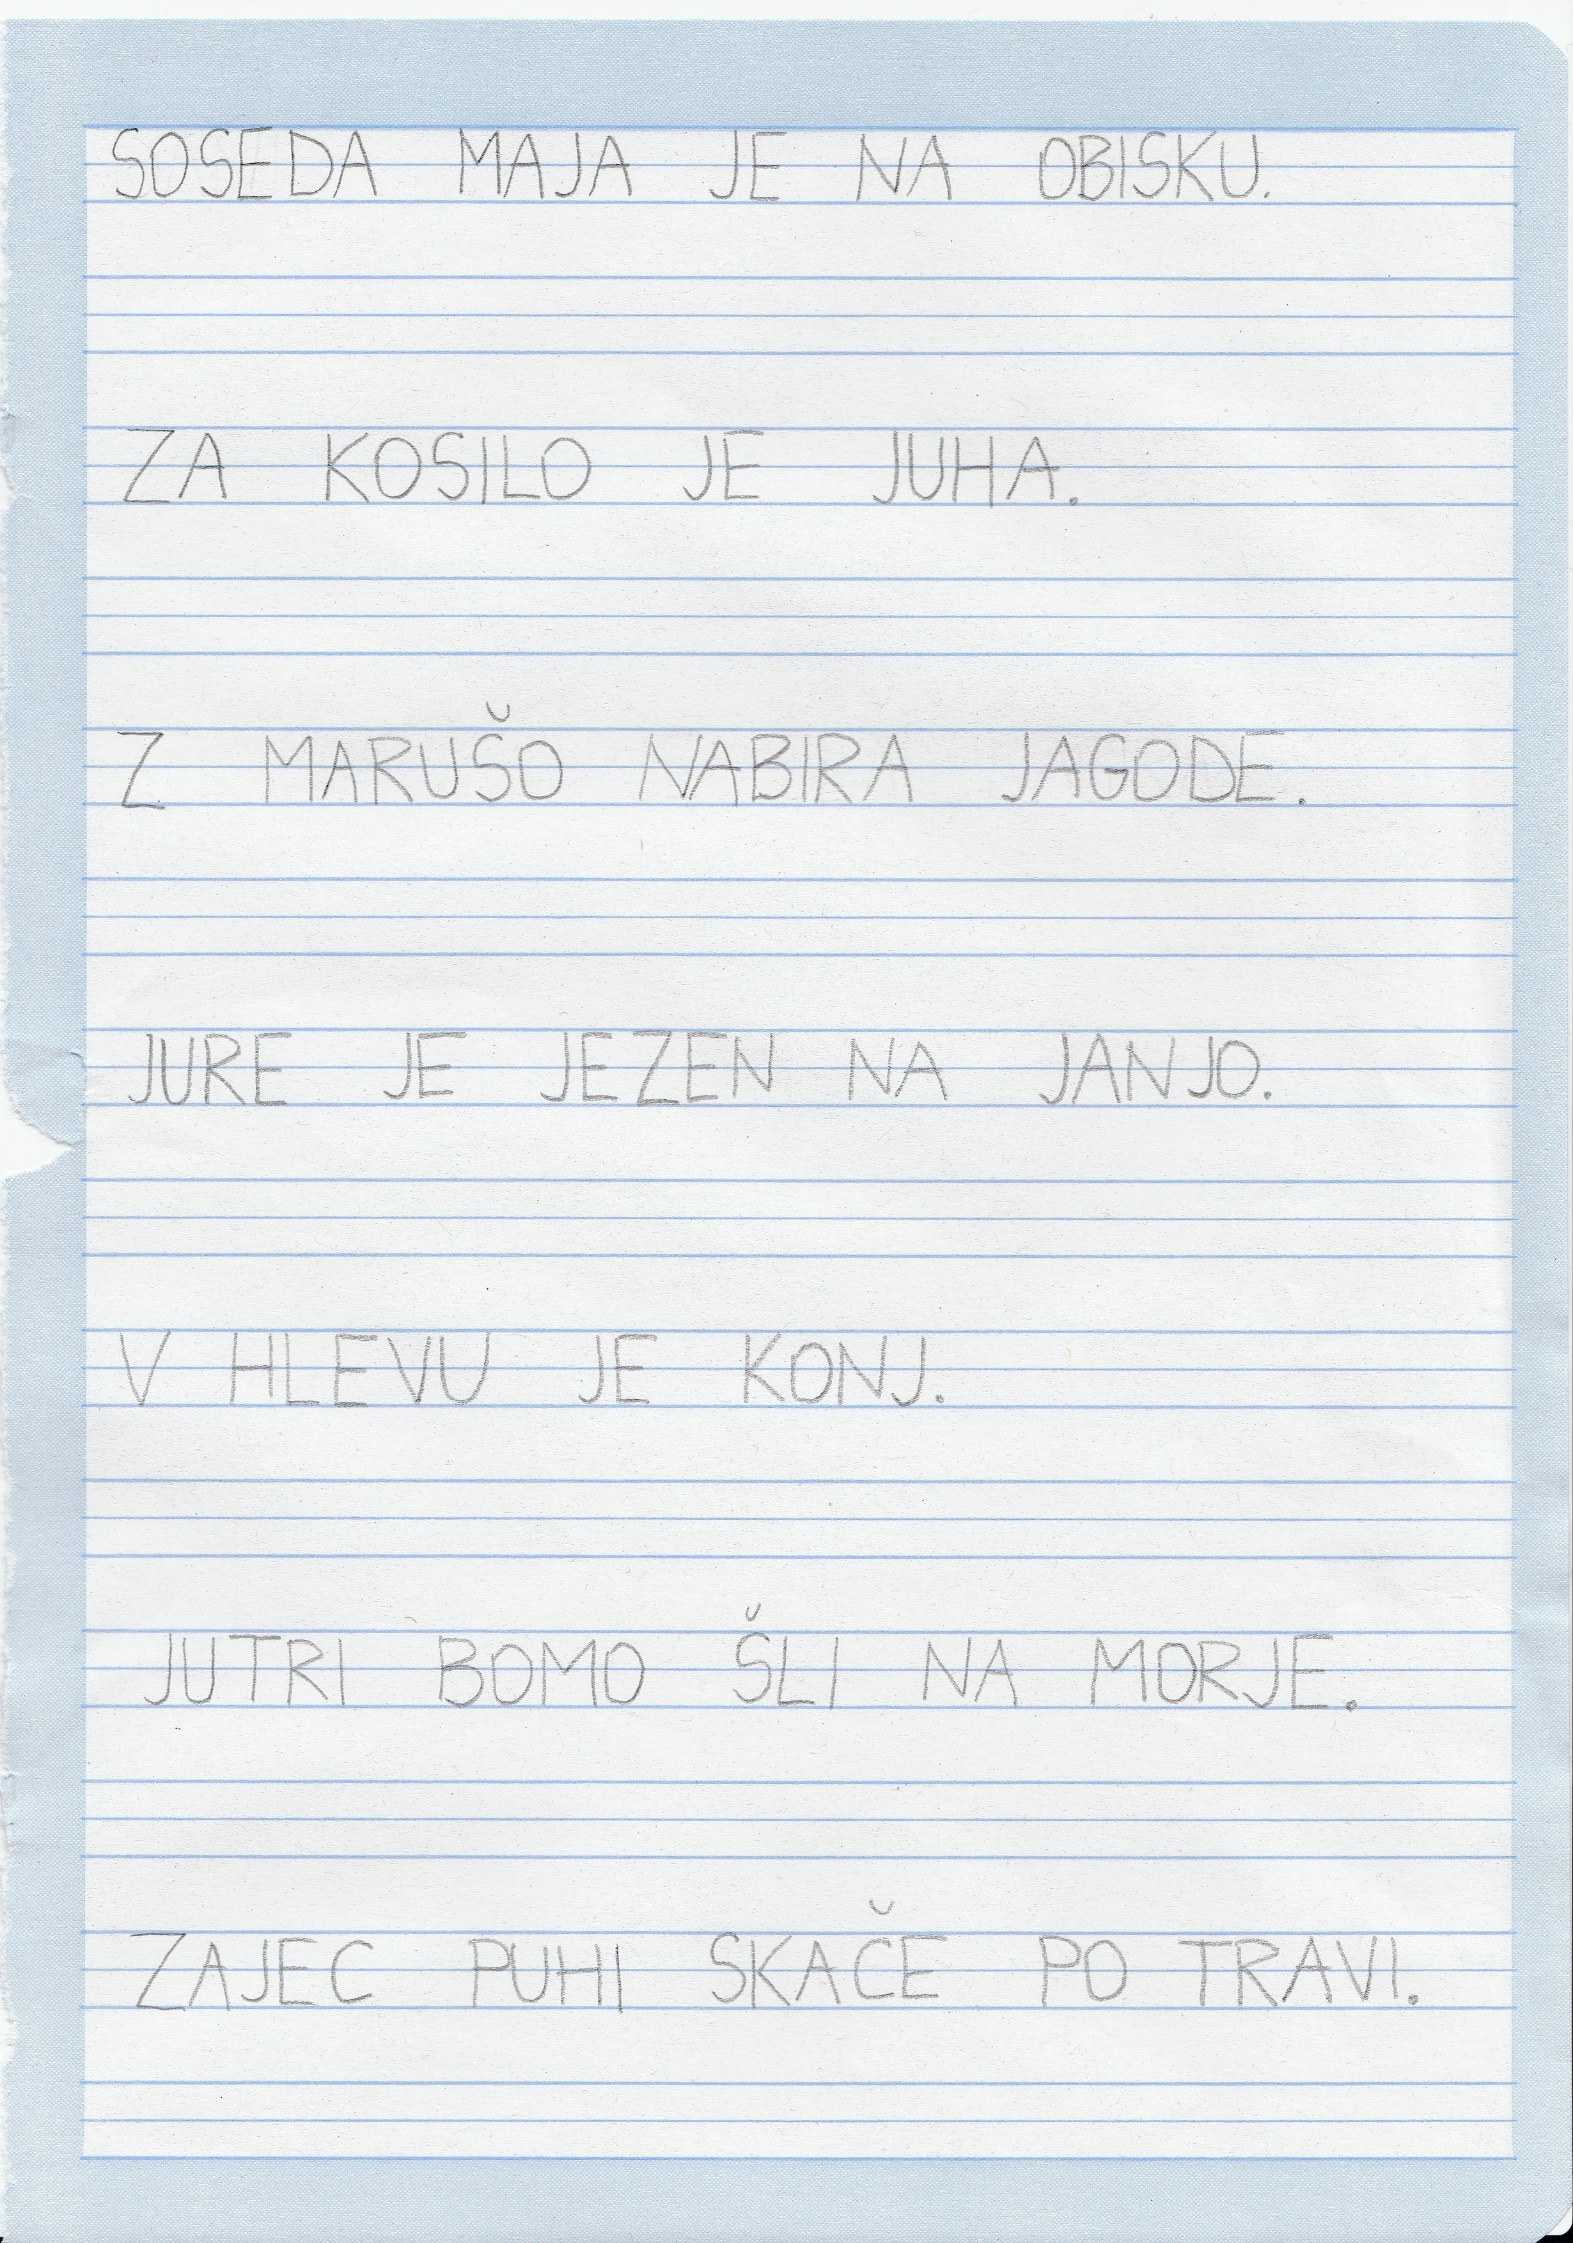 SOSEDA MAJA JE NA OBISKU.
ZA KOSILO JE JUHA.
Z MARUŠO NABIRA JAGODE.
JURE JE JEZEN NA JANJO.
V HLEVU JE KONJ.
JUTRI BOMO ŠLI NA MORJE.
ZAJEC PUHI SKAČE PO TRAVI.